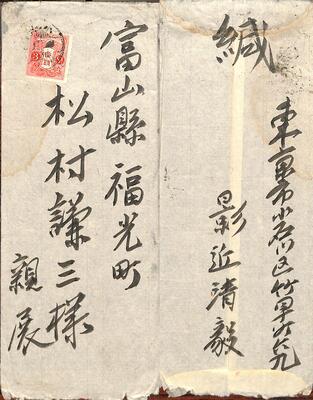 富山縣福光町
松村謙三様
親展
緘
東京市小石川区竹早町
影近清毅